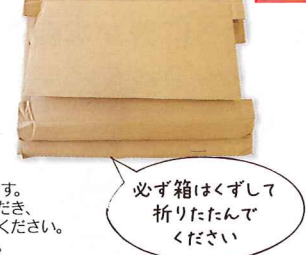 す。
だき、
ください。
必ず箱はくずして
折りたたんで
ください